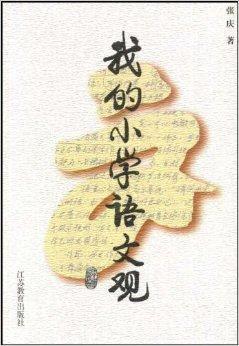 张庆 著
我的小学语文观
江苏教育出版社